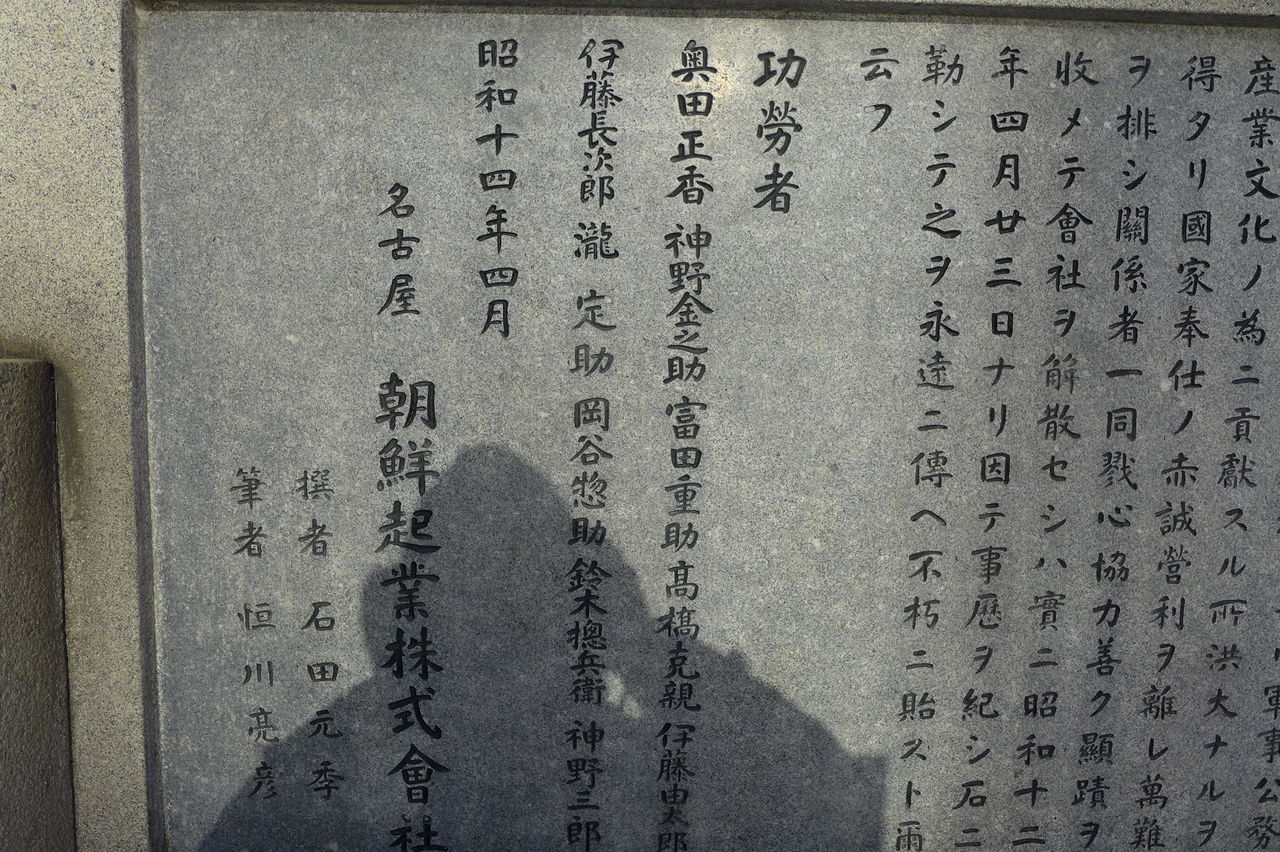 産業文化ノ為ニ貢獻スル所洪大ナルヲ
得タリ國家奉仕ノ赤誠營利ヲ離レ萬難
ヲ排シ關係者一同戮心協力善ク顯蹟ヲ
收メテ會社ヲ解散セシハ實ニ昭和十二
年四月廿三日ナリ因テ事歷ヲ紀シ石ニ
勒シテ之ヲ永遠ニ傳ヘ不朽ニ貽スト爾
云フ
功勞者
奥田正香 神野金之助 富田重助 髙橋克親 伊藤由太郎
伊藤長次郎 瀧定助 岡谷惣助 鈴木摠兵衞 神野三郎
昭和十四年四月
名古屋 朝鮮起業株式會社
撰者 石田元季
筆者 恒川亮彦